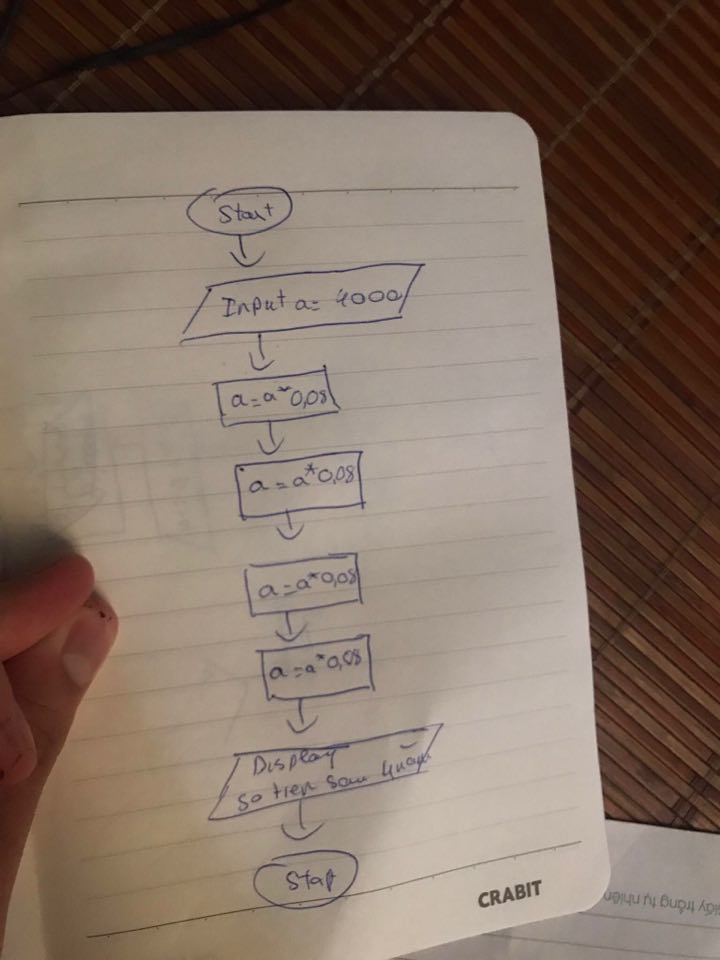 Start
Input a = 4000
a = a * 0,08
a = a * 0,08
a = a * 0,08
a = a * 0,08
Display
so tien sau 4 năm
Stop
CRABIT
giấy trắng tự nhiên